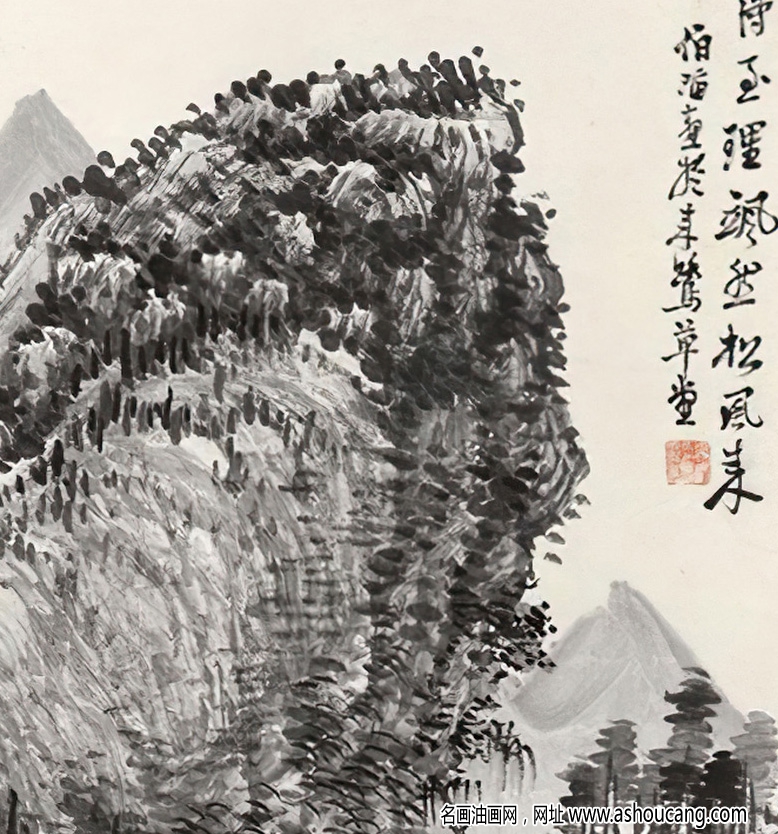 得至理飒然松风来
伯滔畫於来鷺草堂
名画油画网，网址 www.ashoucang.com